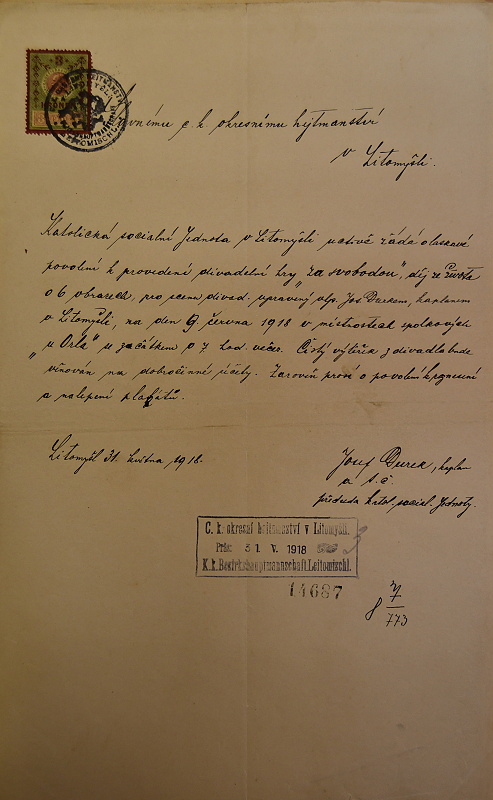 Slavnému c. k. okresnímu hejtmanství
v Litomyšli.
Katolická socialní Jednota v Litomyšli uctivě žádá o laskavé
povolení k provedení divadelní hry „Za svobodou", děj ze života
o 6 obrazech, pro scenu divad. upravený vlp. Jos. Durkem, kaplanem
v Litomyšli, na den 9 června 1918 v místnostech spolkových
„u Orla" se začátkem o 7 hod. večer. Čistý výtěžek z divadla bude
věnován na dobročinné účely. Zároveň prosí o povolení k
a nalepení plakátů.
Litomyšl 31. května 1918.
Josef Durek, kaplan
a t. č.
předseda katol. sociel. Jednoty.
C. k. okresní hejtmanství v Litomyšli.
Präs. 31. V. 1918
K. k. Bezirkshauptmannschaft Leitomischl.
14687
8 7/773